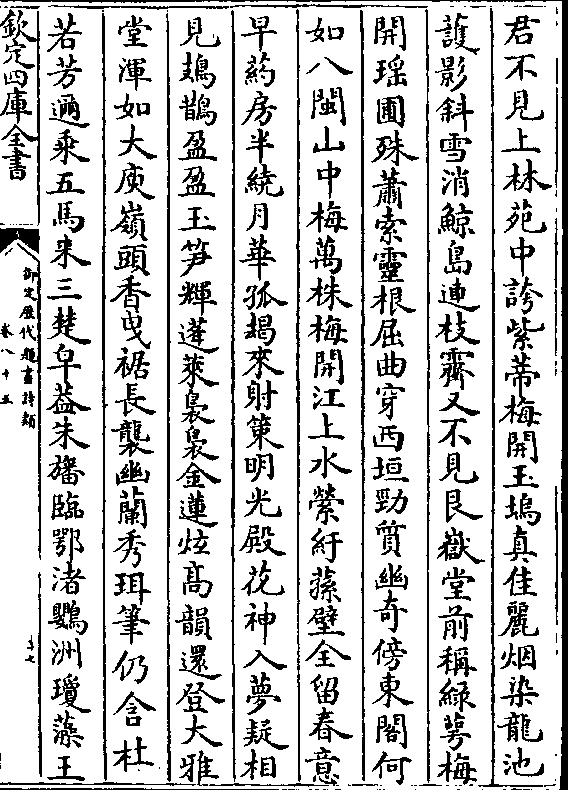 君不見上林苑中誇紫蒂梅開玉塢真佳麗烟染龍池
護影斜雪消鯨島連枝霽又不見艮嶽堂前稱緑萼梅
開瑶圃殊蕭索靈根屈曲穿西垣勁質幽奇傍東閣何
如八閩山中梅萬株梅開江上水縈紆蘂壁全留春意
早葯房半繞月華孤朅來射策明光殿花神入夢疑相
見鳷鵲盈盈玉笋輝蓬萊裊裊金蓮炫高韻還登大雅
堂渾如大庾嶺頭香曳裾長襲幽蘭秀珥筆仍含杜
若芳邇乗五馬来三楚皁葢朱旛臨鄂渚鸚洲瓊蘂王
欽定四庫全書
御定歷代題畫詩類
卷八十五